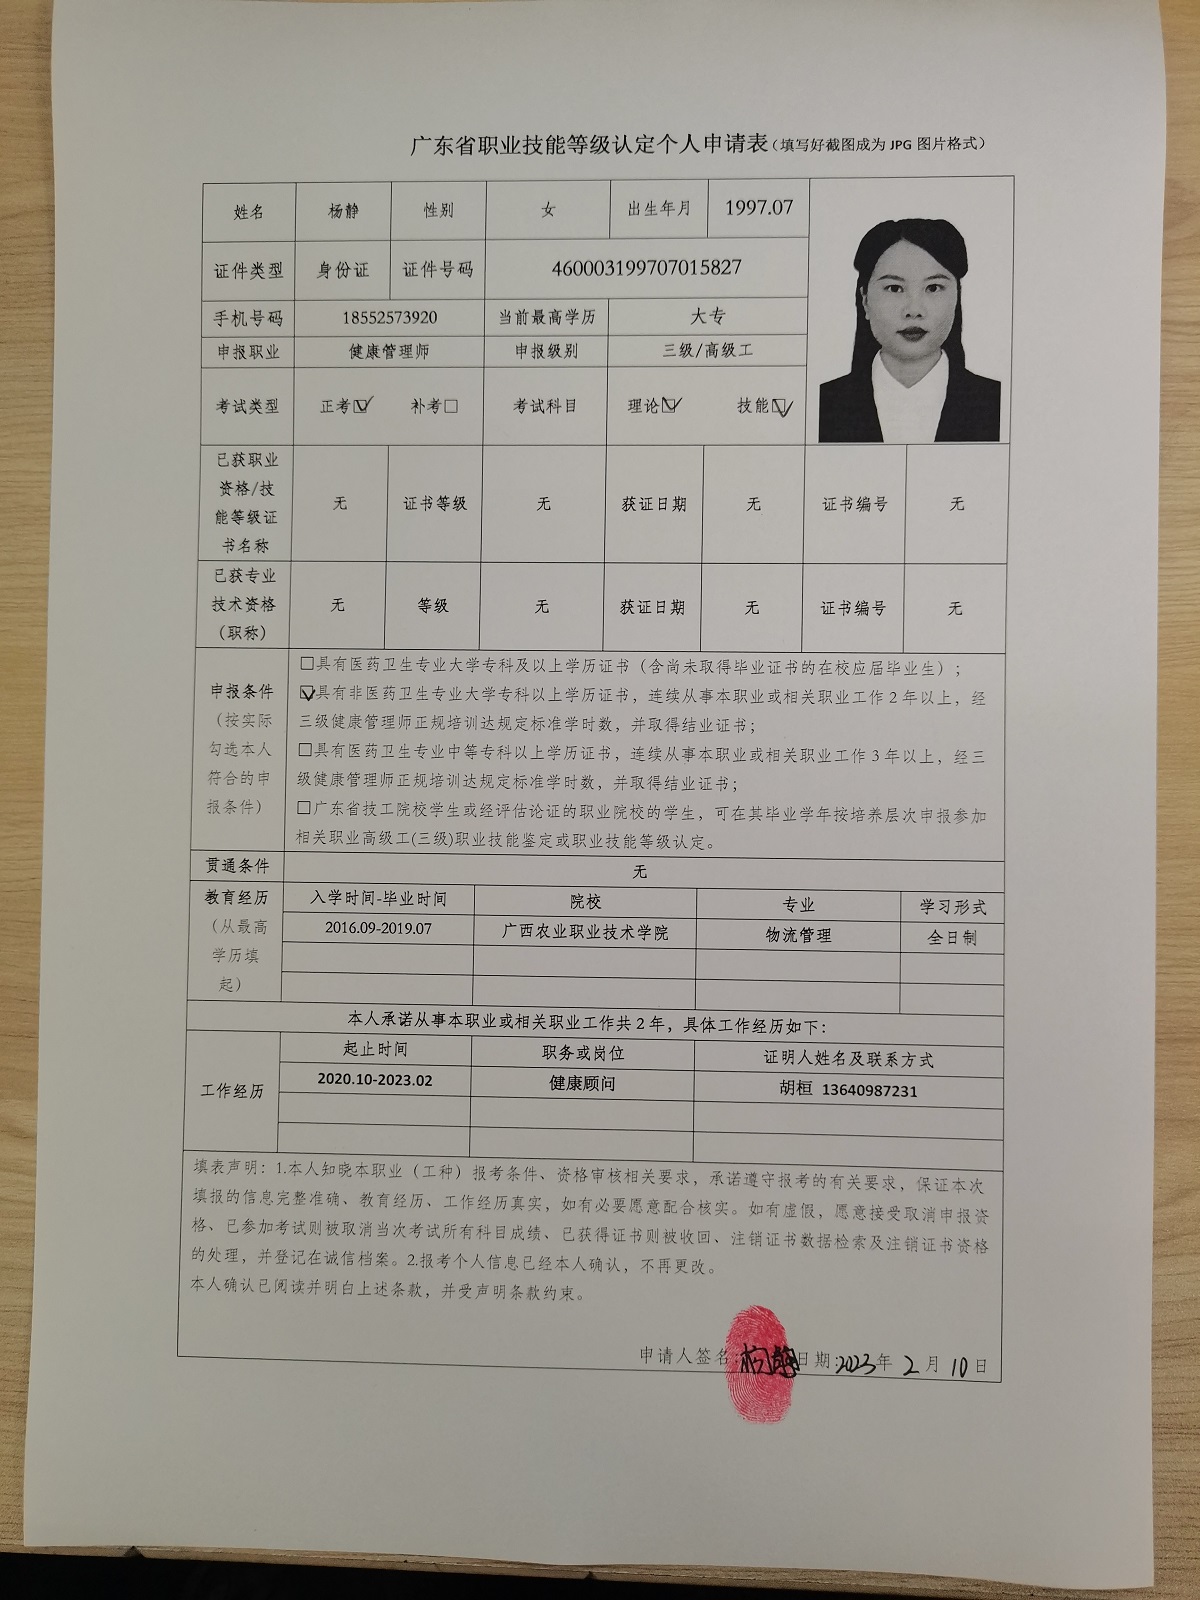 广东省职业技能等级认定个人申请表（填写好截图成为 JPG 图片格式）
姓名 杨静 性别 女 出生年月 1997.07
证件类型 身份证 证件号码 460003199707015827
手机号码 18552573920 当前最高学历 大专
申报职业 健康管理师 申报级别 三级/高级工
考试类型 正考☑ 补考□ 考试科目 理论☑ 技能☑
已获职业
资格/技
能等级证
书名称
无 证书等级 无 获证日期 无 证书编号 无
已获专业
技术资格
（职称）
无 等级 无 获证日期 无 证书编号 无
申报条件
（按实际
勾选本人
符合的申
报条件）
□具有医药卫生专业大学专科及以上学历证书（含尚未取得毕业证书的在校应届毕业生）；
☑具有非医药卫生专业大学专科以上学历证书，连续从事本职业或相关职业工作 2 年以上，经
三级健康管理师正规培训达规定标准学时数，并取得结业证书；
□具有医药卫生专业中等专科以上学历证书，连续从事本职业或相关职业工作 3 年以上，经三
级健康管理师正规培训达规定标准学时数，并取得结业证书；
□广东省技工院校学生或经评估论证的职业院校的学生，可在其毕业学年按培养层次申报参加
相关职业高级工(三级)职业技能鉴定或职业技能等级认定。
贯通条件 无
教育经历
（从最高
学历填
起）
入学时间-毕业时间 院校 专业 学习形式
2016.09-2019.07 广西农业职业技术学院 物流管理 全日制
本人承诺从事本职业或相关职业工作共 2 年，具体工作经历如下：
工作经历
起止时间 职务或岗位 证明人姓名及联系方式
2020.10-2023.02 健康顾问 胡桓 13640987231
填表声明：1.本人知晓本职业（工种）报考条件、资格审核相关要求，承诺遵守报考的有关要求，保证本次
填报的信息完整准确、教育经历、工作经历真实，如有必要愿意配合核实。如有虚假，愿意接受取消申报资
格、已参加考试则被取消当次考试所有科目成绩、已获得证书则被收回、注销证书数据检索及注销证书资格
的处理，并登记在诚信档案。2.报考个人信息已经本人确认，不再更改。
本人确认已阅读并明白上述条款，并受声明条款约束。
申请人签名：杨静 日期：2023年 2 月 10 日